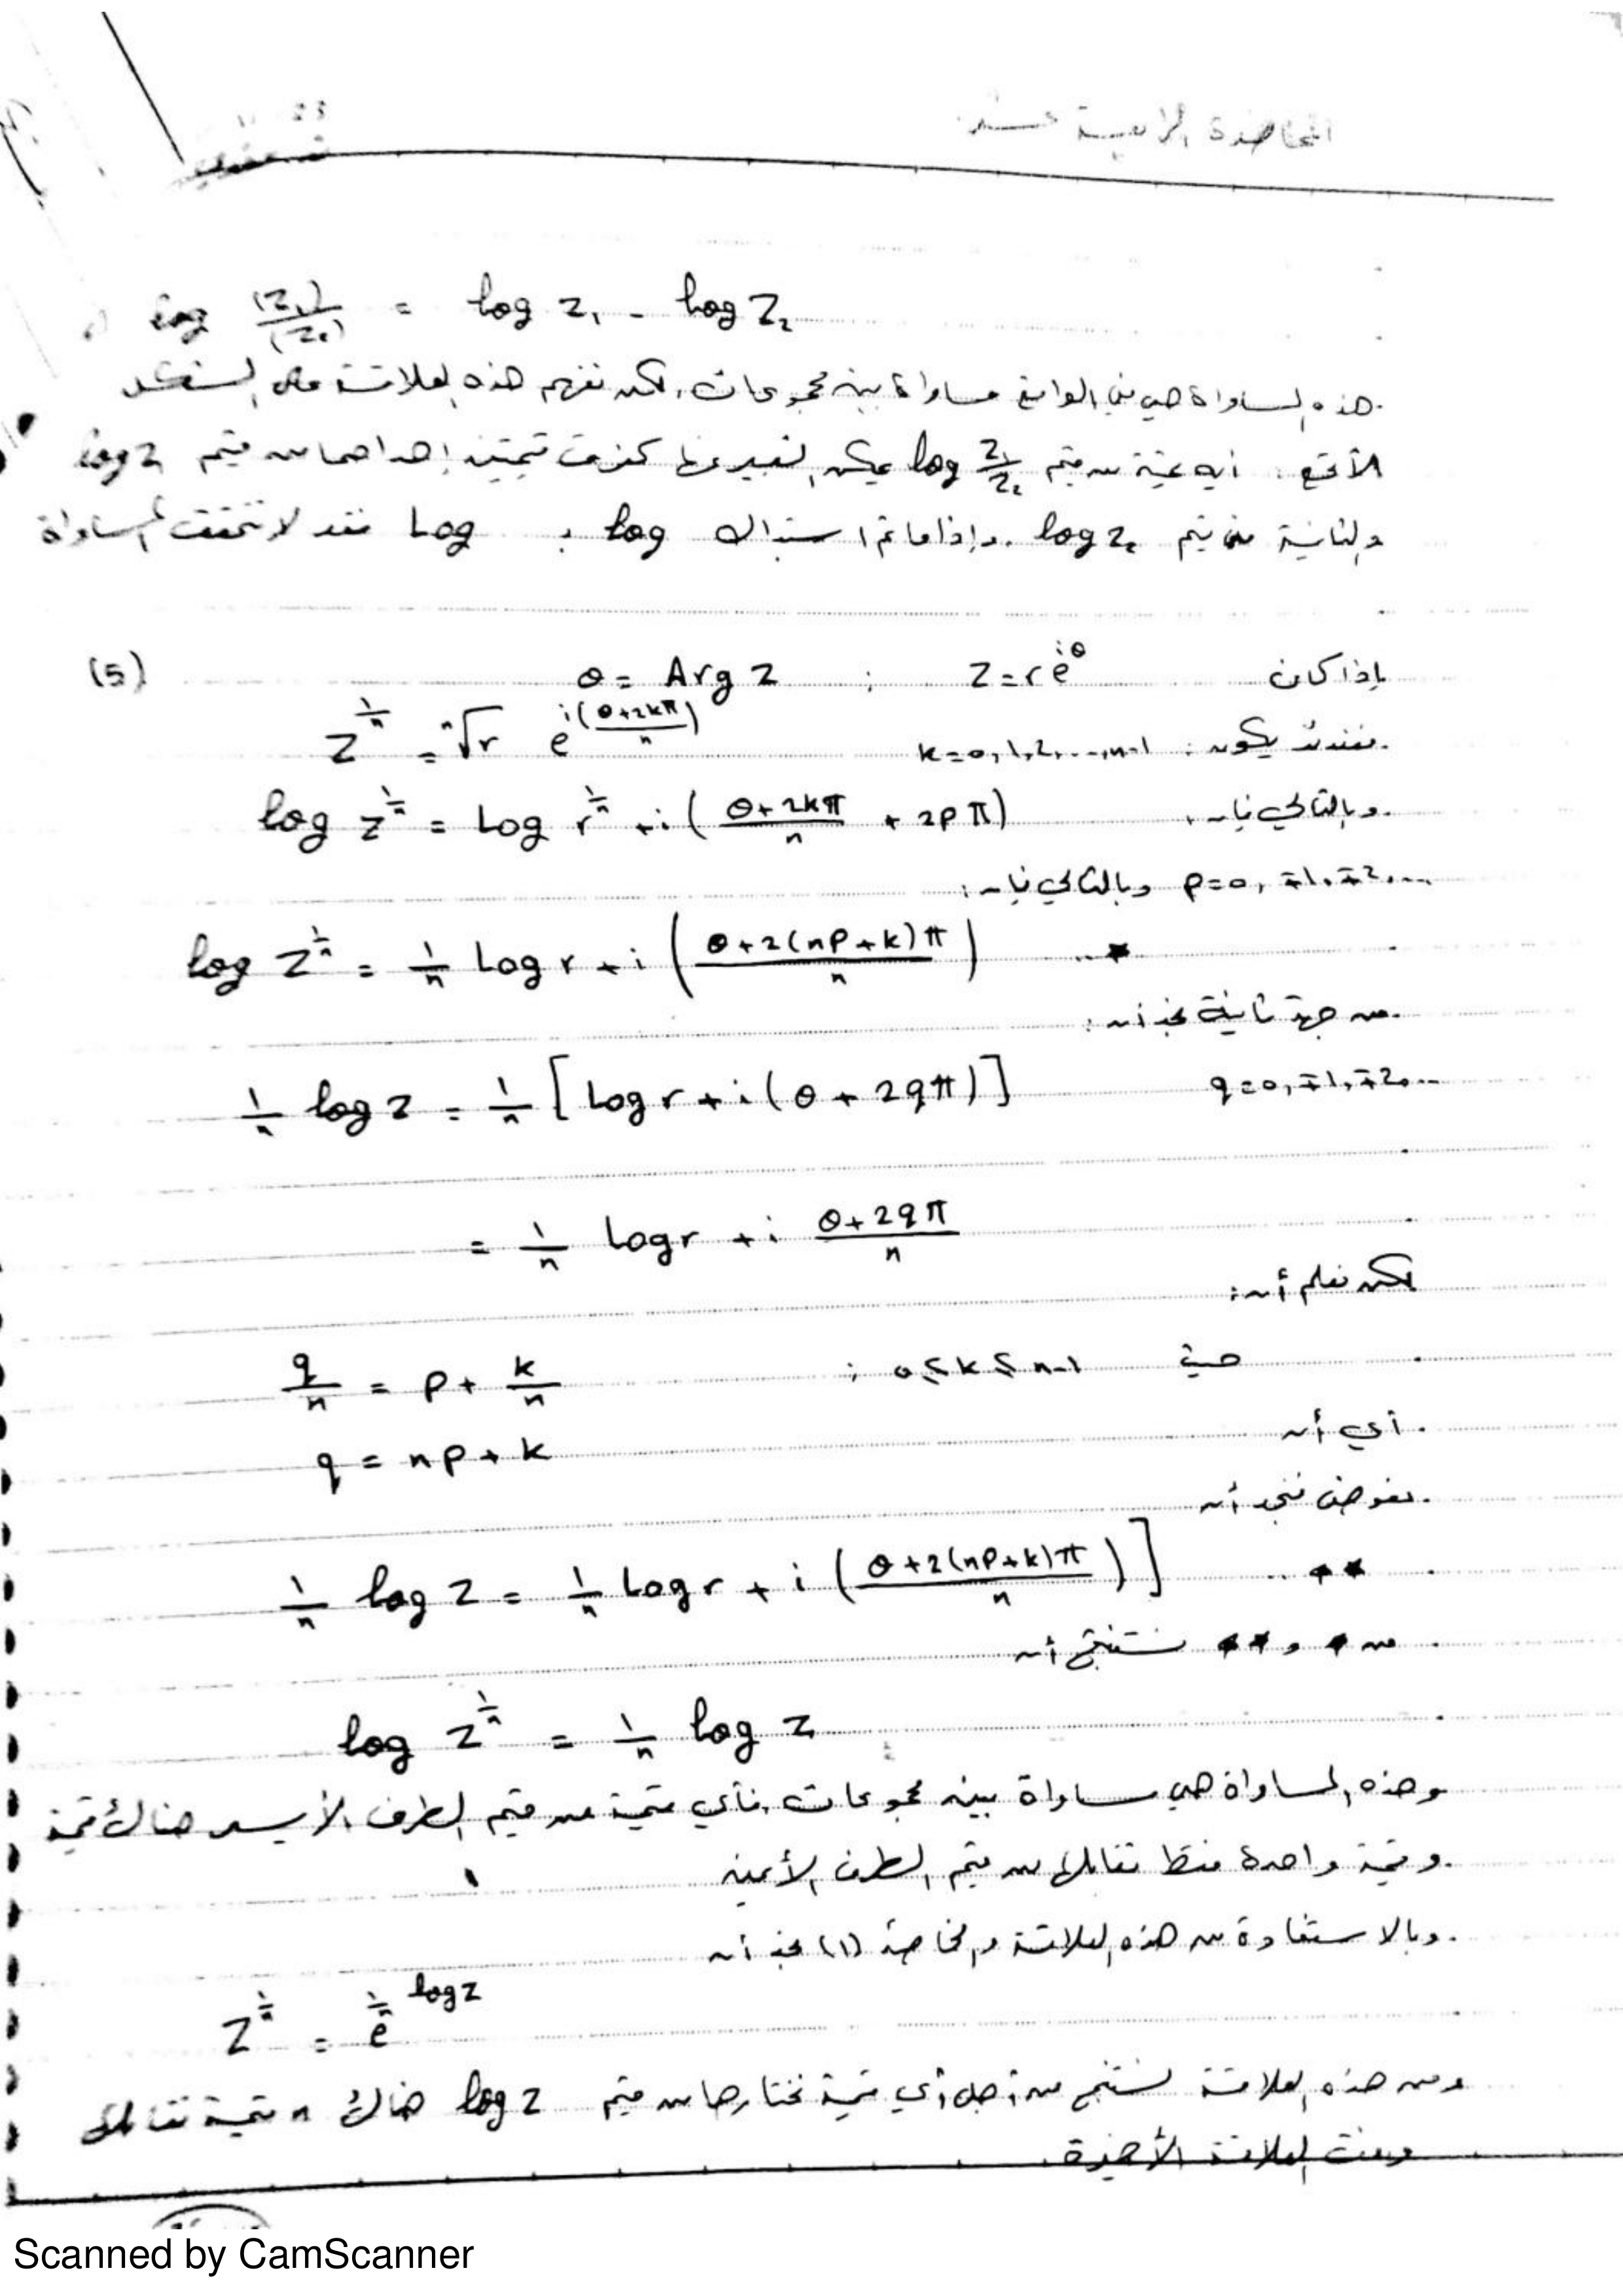 المحاضرة الرابعة عشر
log (z₁)/(z₂) = log z₁ - log z₂
هذه المساواة هي في الواقع مساواة بين مجموعات، لكن نفهم هذه العلاقة على الشكل
الآتي: أية قيمة من قيم log z₁/z₂ يمكن التعبير عنها كفرق قيمتين إحداهما من قيم log z₁
والثانية من قيم log z₂. وإذا ما تم استبدال log بـ Log فقد لا تتحقق المساواة
(5) إذا كان z = re^{iθ} ; θ = Arg z
فعندئذ يكون: k = 0, 1, 2, ..., n-1 z^{1/n} = ⁿ√r e^{i(θ+2kπ)/n}
وبالتالي فإن: log z^{1/n} = Log r^{1/n} + i((θ+2kπ)/n + 2pπ)
p = 0, ∓1, ∓2, ... وبالتالي فإن:
log z^{1/n} = 1/n Log r + i((θ+2(np+k)π)/n) ...*
من جهة ثانية نجد أن:
1/n log z = 1/n [Log r + i(θ + 2qπ)] q = 0, ∓1, ∓2, ...
= 1/n Log r + i (θ+2qπ)/n
لكن نعلم أن:
q/n = p + k/n ; 0 ≤ k ≤ n-1 حيث
أي أن
q = np + k
نعوض فنجد أن
1/n log z = 1/n Log r + i((θ+2(np+k)π)/n)] ..**
من * و ** نستنتج أن
log z^{1/n} = 1/n log z
وهذه المساواة هي مساواة بين مجموعات، فأي قيمة من قيم الطرف الأيسر هناك قيمة
وقيمة واحدة فقط تقابلها من قيم الطرف الأيمن
وبالاستفادة من هذه العلاقة والخاصة (1) نجد أن
z^{1/n} = e^{1/n log z}
ومن هذه العلاقة نستنتج من أجل أي قيمة نختارها من قيم log z هناك n قيمة تقابلها
وفق العلاقة الأخيرة
Scanned by CamScanner